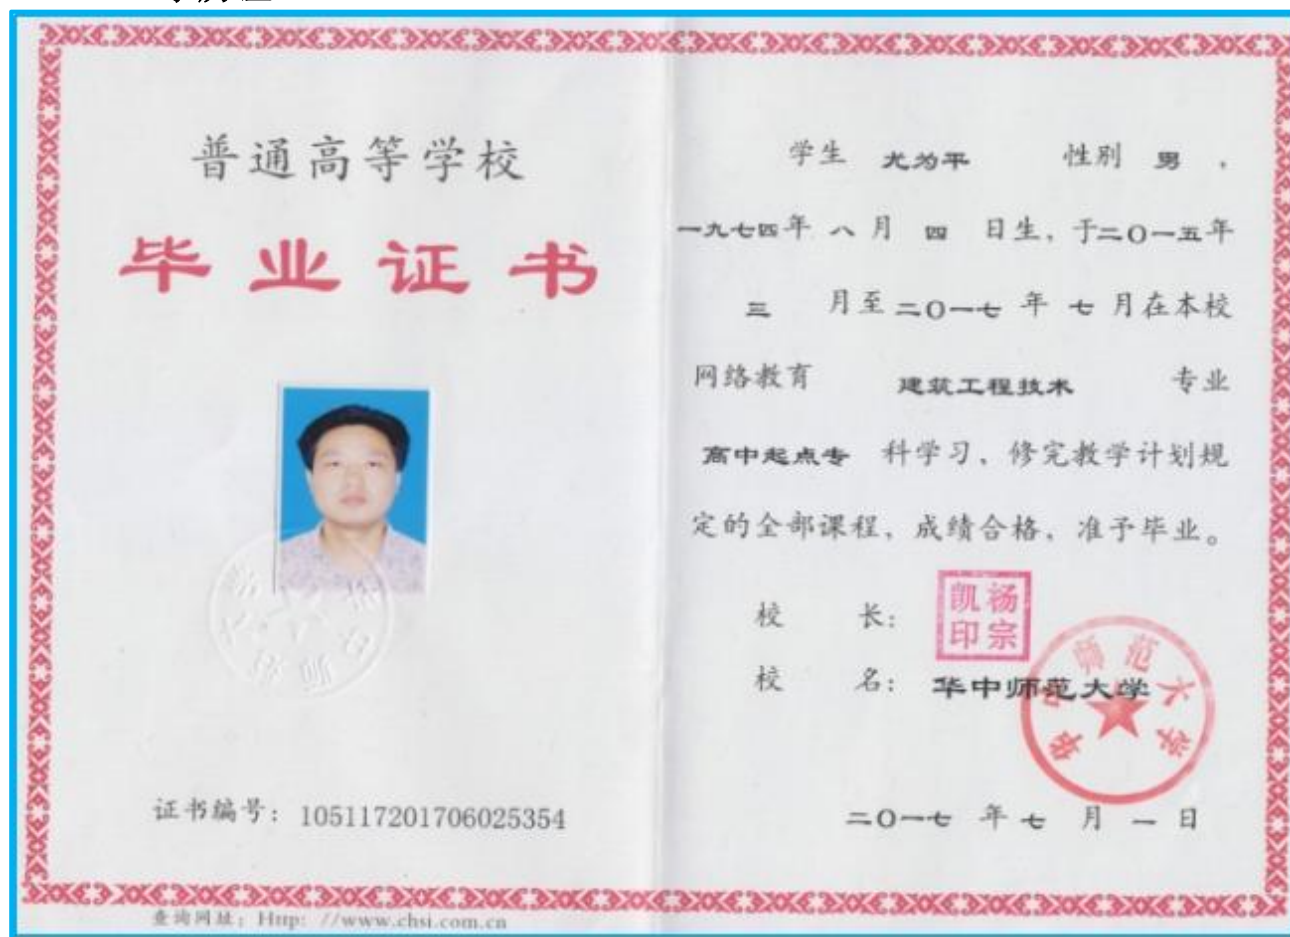 普通高等学校
毕业证书
证书编号：105117201706025354
查询网址：Http：//www.chsi.com.cn
学生 尤为平 性别 男，
一九七四年 八 月 四 日生，于二O一五年
三 月至 二O一七 年 七 月在本校
网络教育 建筑工程技术 专业
高中起点专 科学习，修完教学计划规
定的全部课程，成绩合格，准予毕业。
校 长：
杨宗凯印
校 名：华中师范大学
华中师范大学
二O一七 年 七 月 一 日